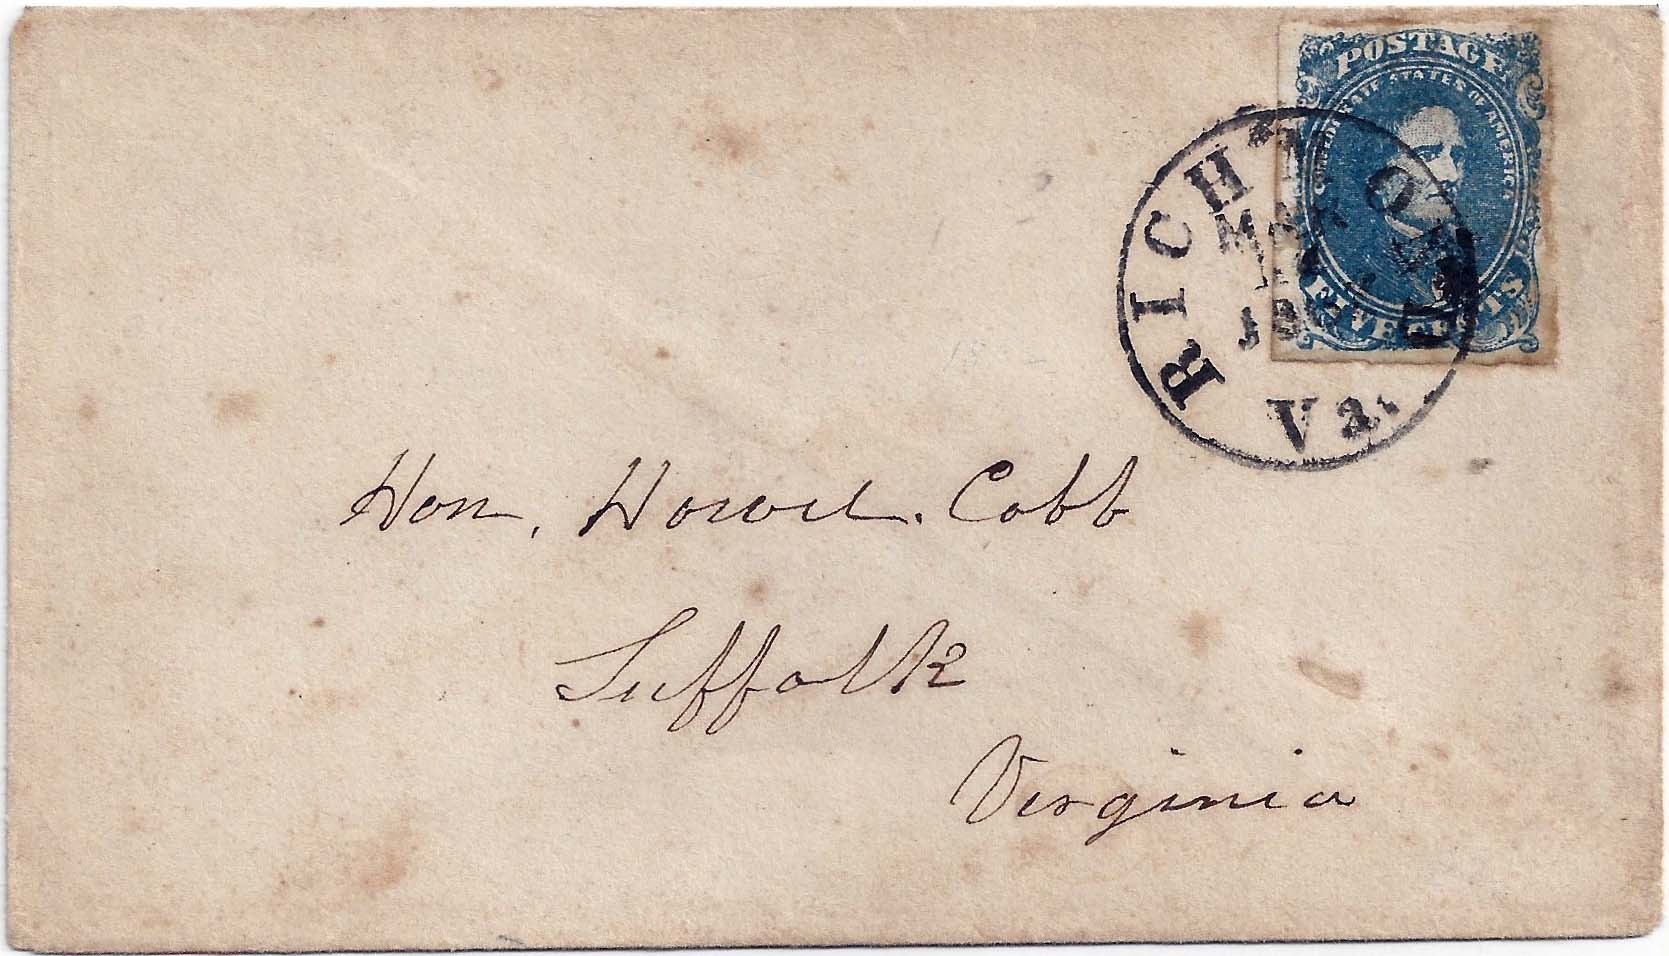 POSTAGE
CONFEDERATE STATES OF AMERICA
FIVE CENTS
RICHMOND
MAR
Va.
Hon, Howell Cobb
Suffolk
Virginia